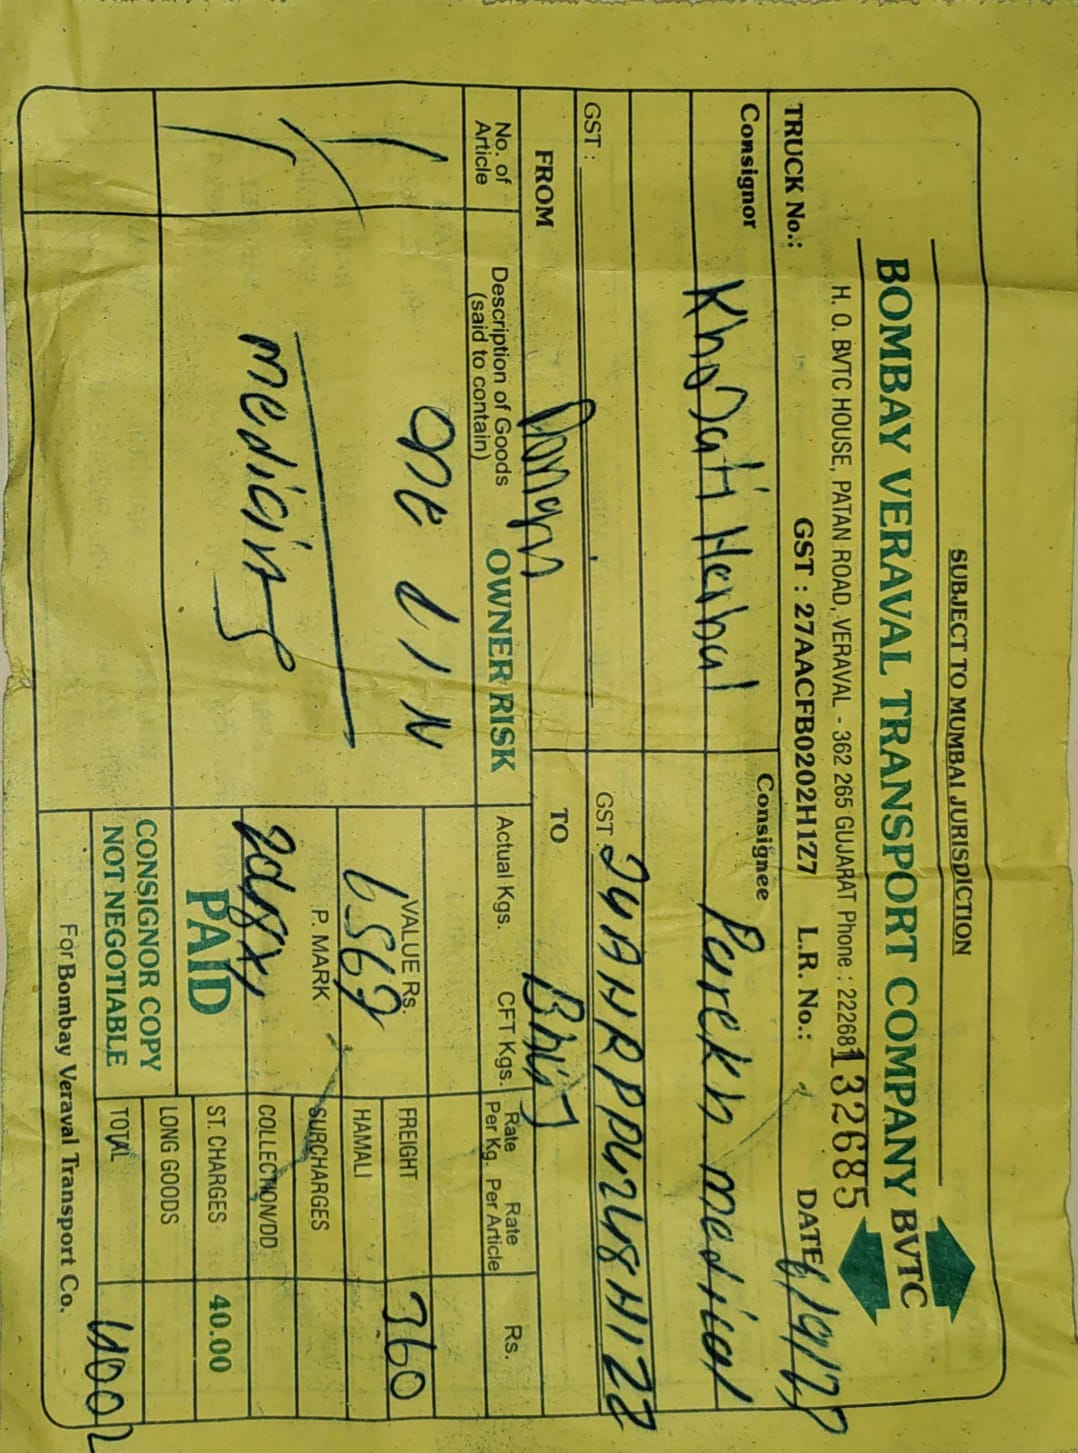 SUBJECT TO MUMBAI JURISDICTION
BOMBAY VERAVAL TRANSPORT COMPANY BVTC
H. O. BVTC HOUSE, PATAN ROAD, VERAVAL - 362 265 GUJARAT Phone : 222681
132685
TRUCK No.: GST : 27AACFB0202H1Z7 L.R. No.: DATE
Consignor Khodati Herbal Consignee Parekh medical
GST : GST
FROM Dongri TO Bhuj
No. of Article Description of Goods (said to contain) OWNER RISK Actual Kgs. CFT Kgs. Rate Per Kg. Rate Per Article Rs.
1 one 1 N
VALUE Rs. FREIGHT 360
6567 HAMALI
P. MARK SURCHARGES
medicine COLLECTION/DD
PAID ST. CHARGES 40.00
CONSIGNOR COPY LONG GOODS
NOT NEGOTIABLE TOTAL 400
For Bombay Veraval Transport Co.